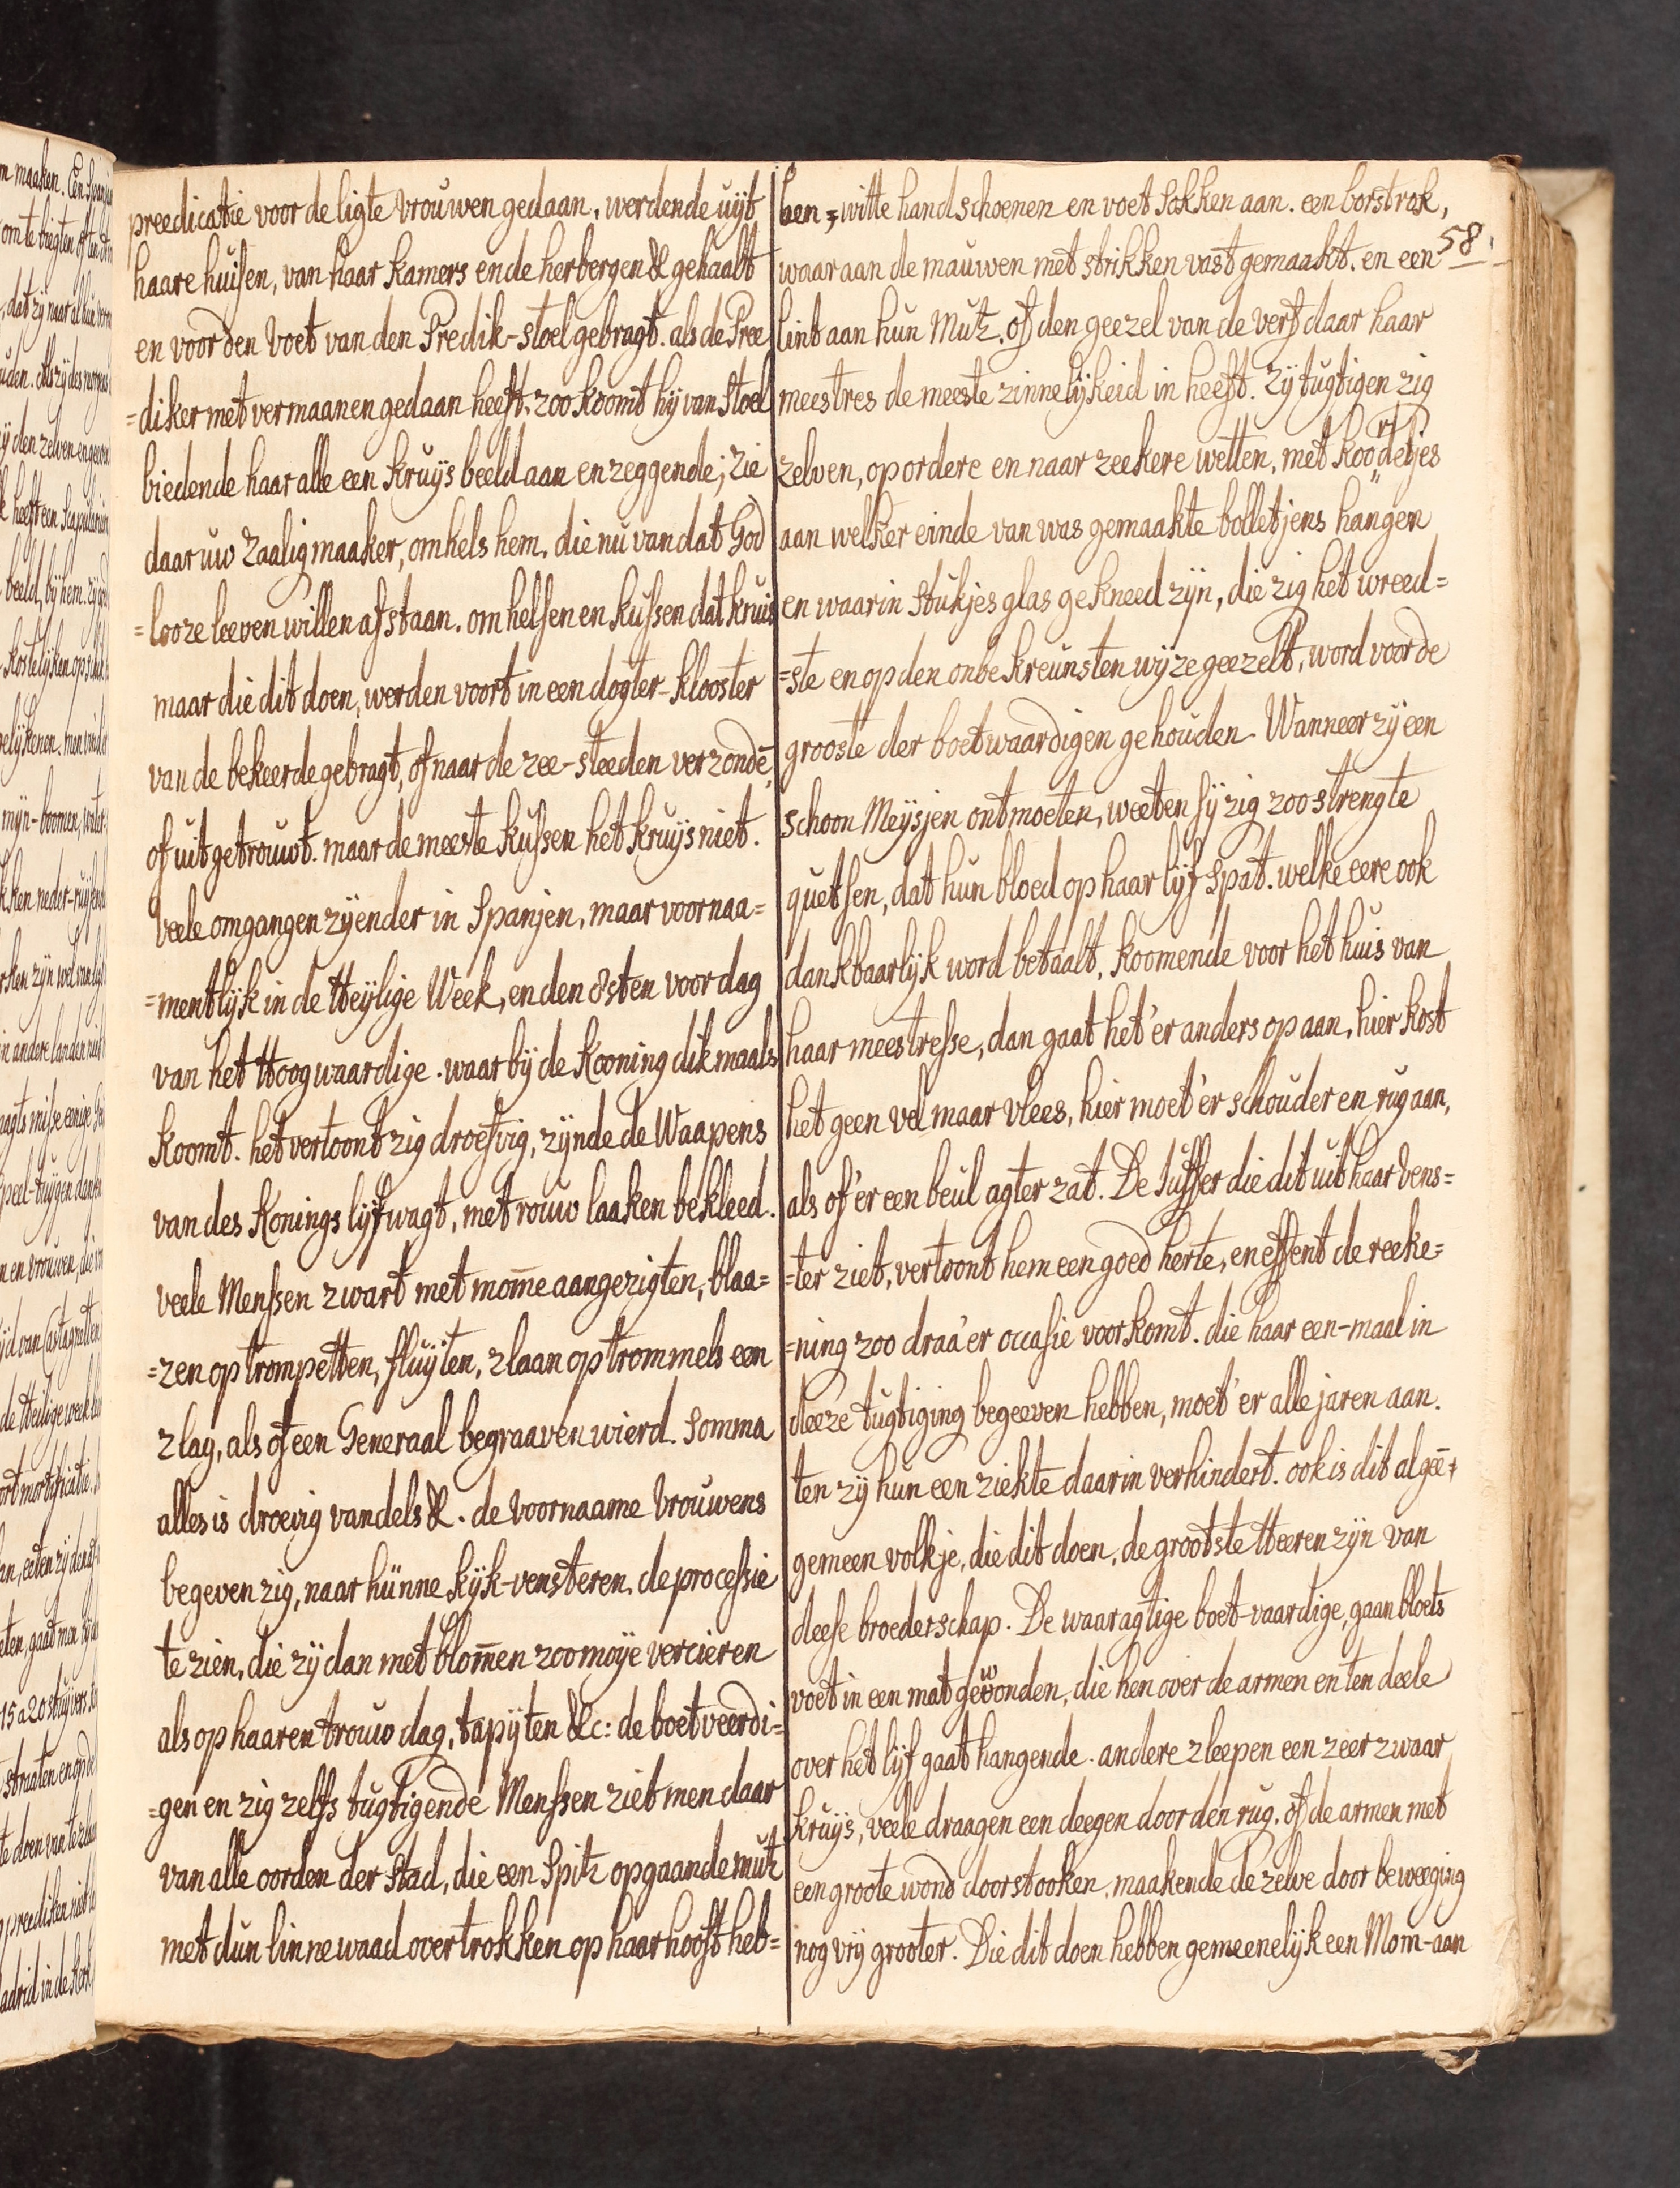 preedicatie voor de ligte vrouwen gedaan, werdende uijt
haare huisen, van haar kamers ende herbergen & gehaalt
en voor den voet van den Predik-stoel gebragt. als de Pree
=diker met vermaanen gedaan heeft. zoo koomt hij van stoel
biedende haar alle een kruijs beeld aan en zeggende; zie
daar uw Zaaligmaaker, omhels hem. die nu van dat God
=looze leeven willen afstaan. omhelsen en kussen dat kruis
maar die dit doen, werden voort in een dogter-klooster
van de bekeerde gebragt, of naar de zee-steeden verzondē,
of uitgetrouwt. maar de meeste kussen het kruijs niet.
veele omgangen zijender in Spanjen, maar voornaa=
=mentlijk in de Heijlige Week, en den 8sten voor dag
van het Hoogwaardige. waar bij de Kooning dikmaals
koomt. het vertoont zig droefvig, zijnde de Waapens
van des Konings lijfwagt, met rouw laaken bekleed.
veele Menssen zwart met mom̄e aangezigten, blaa=
=zen op trompetten, fluijten, zlaan op trommels een
zlag, als of een Generaal begraaven wierd. Somma
alles is droevig vandels &. de voornaame vrouwens
begeven zig, naar hünne kijk-vensteren. de processie
te zien, die zij dan met blom̄en zoo moije vercieren
als op haaren trouw dag, tapijten &c: de boetveerdi=
=gen en zig zelfs tugtigende Menssen ziet men daar
van alle oorden der stad, die een Spitz opgaande mutz
met dun linnewaad overtrokken op haar hooft heb=
ben, witte handschoenen en voet sokken aan. een borstrok,
58.
waar aan de mauwen met strikken vast gemaakt. en een
lint aan hun Mutz. of den geezel van de verf daar haar
meestres de meeste zinnelijkeid in heeft. Zij tugtigen zig
zelven, op ordere en naar zeekere wetten, met koordetjes
aan welker einde van was gemaakte bolletjens hangen
en waarin stukjes glas gekneed zijn, die zig het wreed=
=ste en op den onbekreunsten wijze geezelt, word voor de
grooste der boetwaardigen gehouden. Wanneer zij een
schoon Meijsjen ontmoeten, weeten sij zig zoo strengte
quetsen, dat hun bloed op haar lijf spat. welke eere ook
dankbaarlijk word betaalt, koomende voor het huis van
haar meestresse, dan gaat het'er anders op aan, hier kost
het geen vel maar vlees, hier moet'er schouder en rug aan,
als of'er een beul agter zat. De Juffer die dit uit haar vens=
=ter ziet, vertoont hem een goed herte, en effent de reeke=
=ning zoo draa'er occasie voorkomt. die haar een-maal in
deeze tugtiging begeeven hebben, moet'er alle jaren aan.
ten zij hun een ziekte daarin verhindert. ook is dit algeē
gemeen volkje, die dit doen, de grootste Heeren zijn van
deese broederschap. De waaragtige boet-vaardige, gaan bloets
voet in een mat gewonden, die hen over de armen en ten deele
over het lijf gaat hangende. andere zleepen een zeer zwaar
kruijs, veele draagen een deegen door den rug, of de armen met
een groote wond doorstooken, maakende de zelve door beweeging
nog vrij grooter. Die dit doen hebben gemeenelijk een Mom-aan